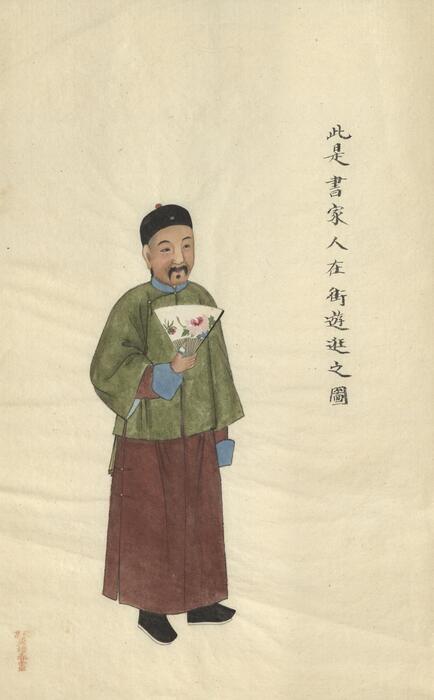 此是書家人在街遊逛之圖